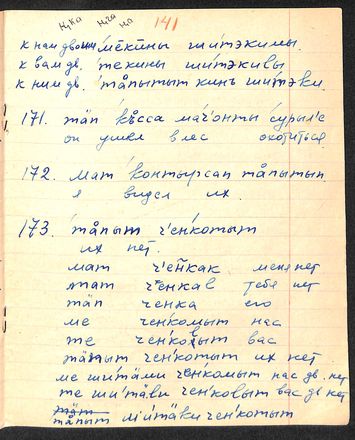 н,ка н,га на 141
к нам двоим мēкūны шитэкины.
к вам дв. те̄кины ши́тэкивы
к ним дв. та̊пытыт кинь ши́тэкӣ.
171. та̄п ќъсса ма́чонты сӯрыле
он ушел в лес охотиться
172. мат ќонтырсап та̊пытып
я видел их.
173. та̊пыт ченќотыт
их нет.
мат ченкак меня нет
тат ченкав тебя нет
та̄п ченка его
ме ченкомыт нас
те ченковыт вас
та̊пыт ченкотыт их нет
ме шита̄ми ченкомыт нас дв. нет
те шита̄ви ченковыт вас дв нет
тат
та̊пыт шита̄ви ченкотыт